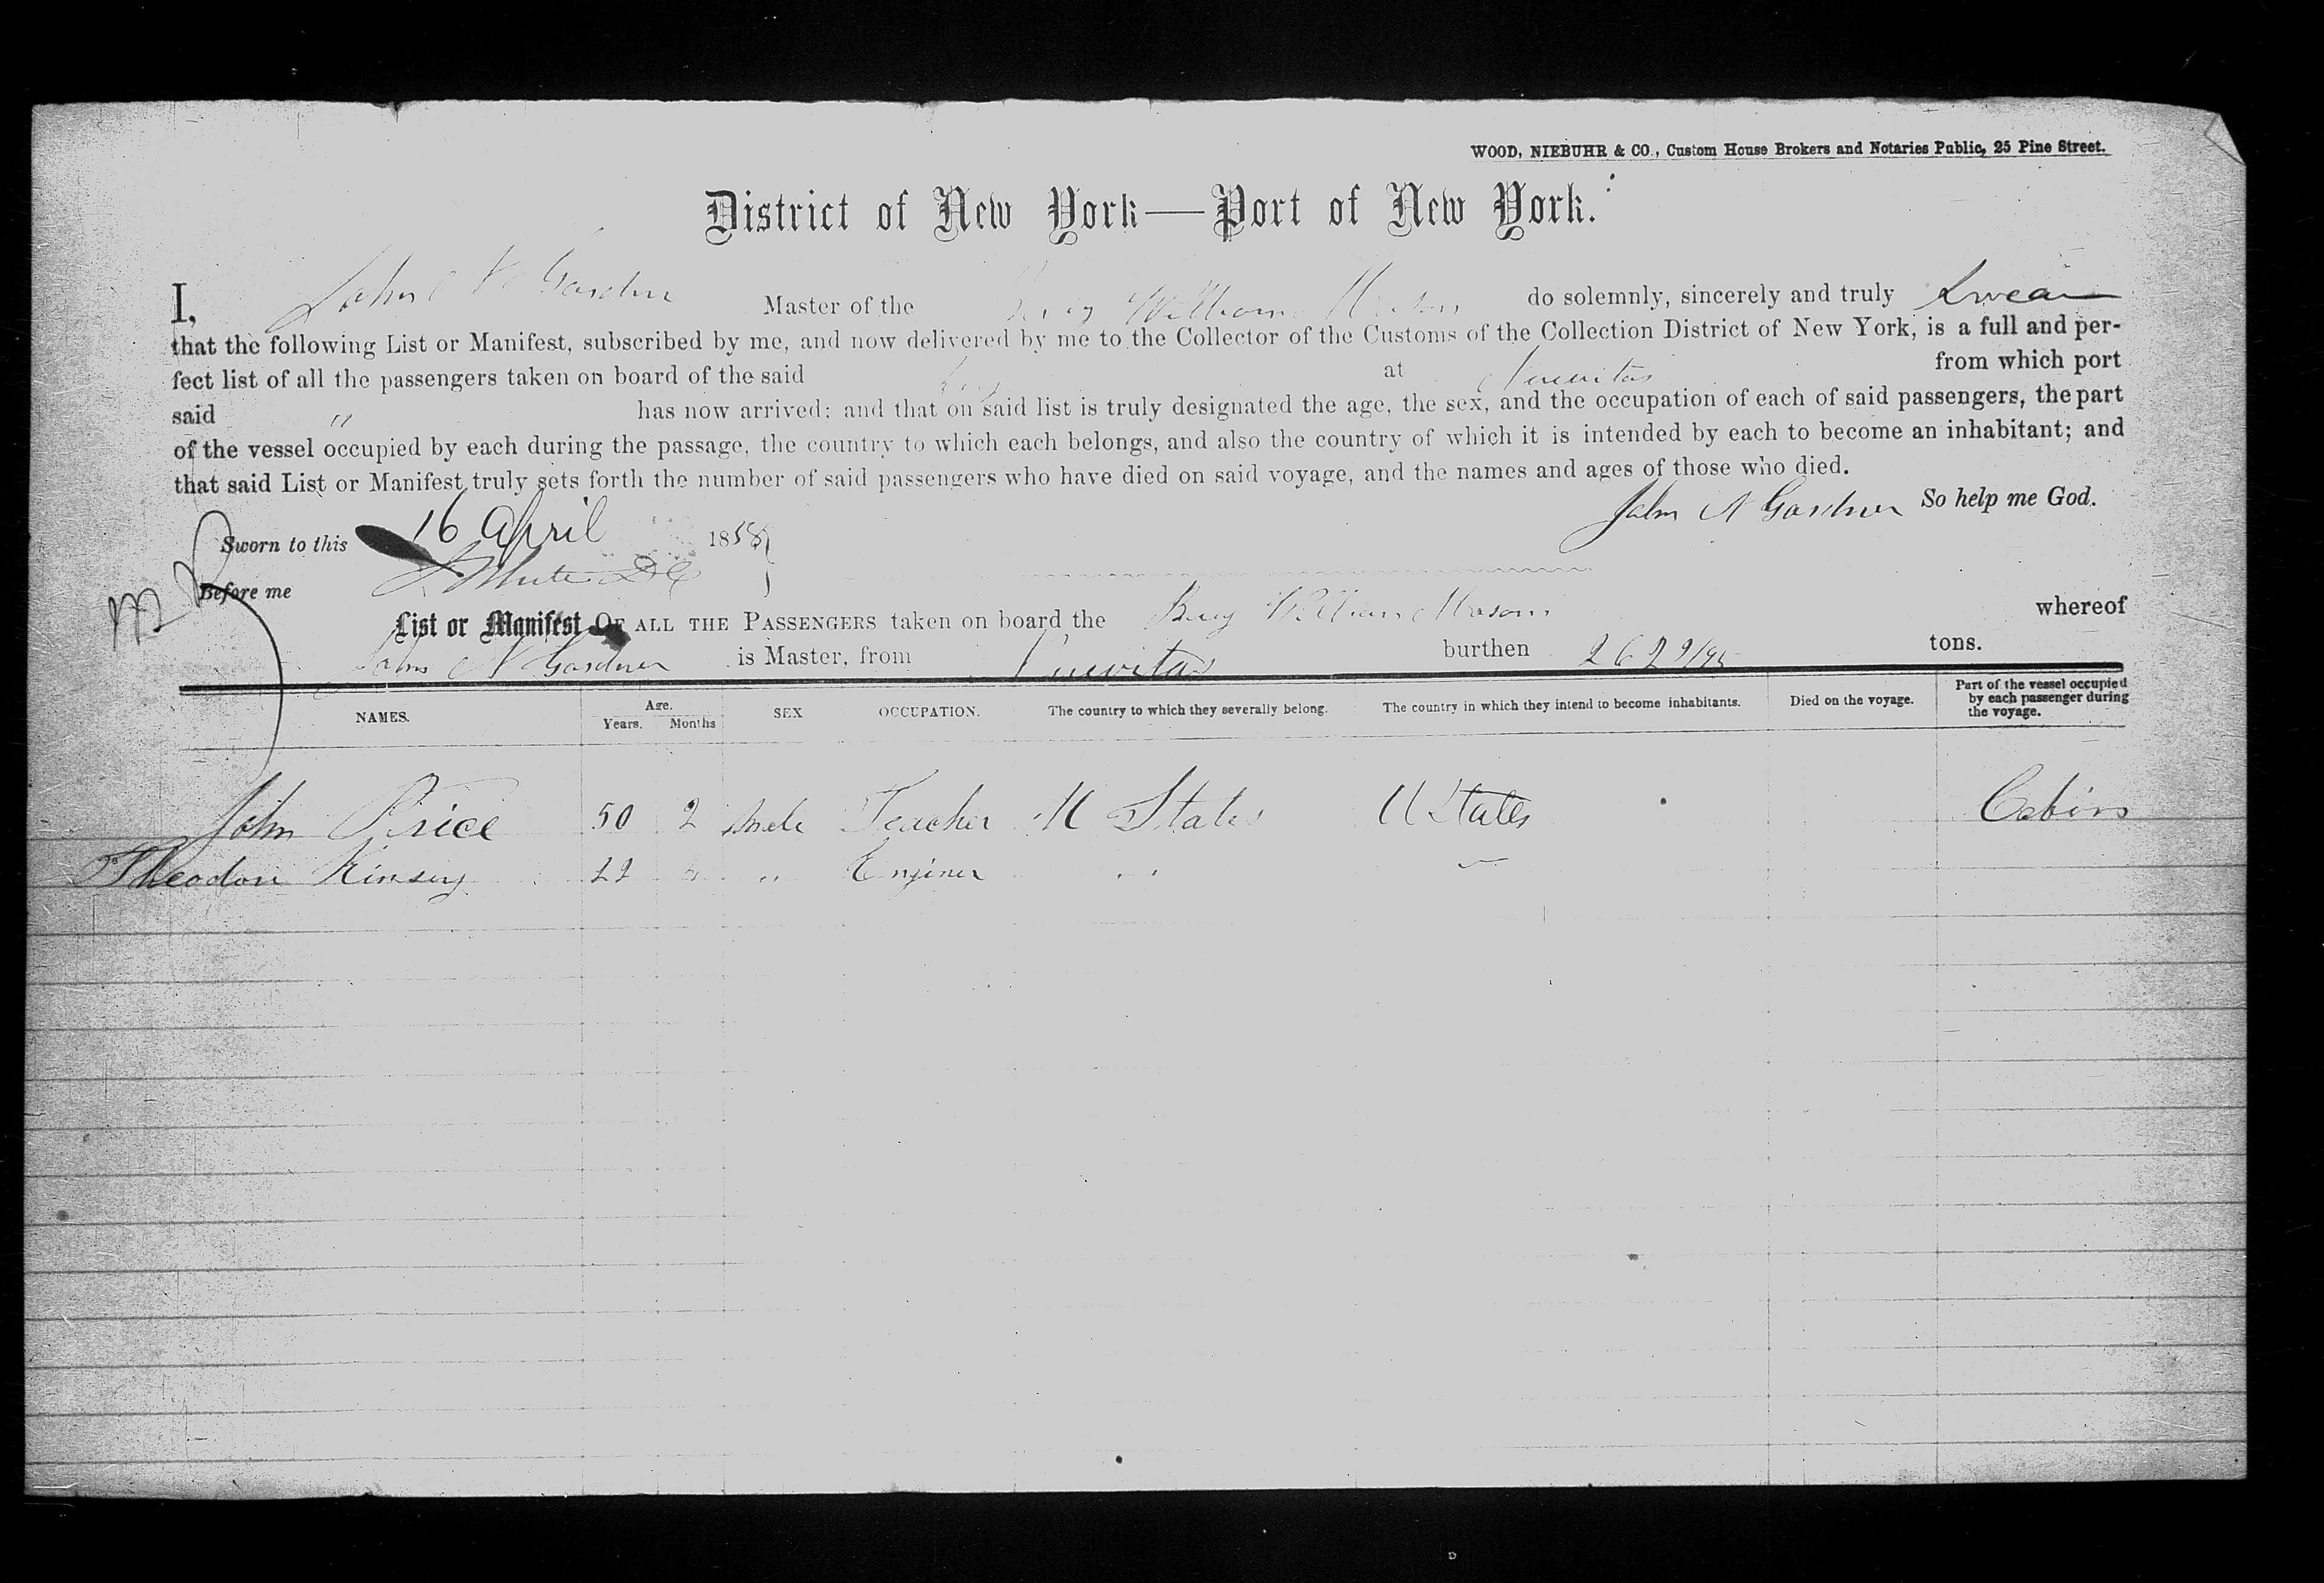 WOOD, NIEBUHR & CO., Custom House Brokers and Notaries Public, 25 Pine Street.
District of New York—Port of New York.
I, John N Gardner Master of the Brig William Mason do solemnly, sincerely and truly Swear
that the following List or Manifest, subscribed by me, and now delivered by me to the Collector of the Customs of the Collection District of New York, is a full and per-
fect list of all the passengers taken on board of the said Brig at Nuevitas from which port
said " has now arrived; and that on said list is truly designated the age, the sex, and the occupation of each of said passengers, the part
of the vessel occupied by each during the passage, the country to which each belongs, and also the country of which it is intended by each to become an inhabitant; and
that said List or Manifest truly sets forth the number of said passengers who have died on said voyage, and the names and ages of those who died.
John N Gardner So help me God.
Sworn to this 16 April 1858
Before me White
List or Manifest OF ALL THE PASSENGERS taken on board the Brig William Mason whereof
John N Gardner is Master, from Nuevitas burthen 262 tons.
NAMES. Age. Years. Months SEX OCCUPATION. The country to which they severally belong. The country in which they intend to become inhabitants. Died on the voyage. Part of the vessel occupied by each passenger during the voyage.
John Price 50 2 Male Teacher U States U States Cabin
Theodore Kinsey 22 " " Enginer " "